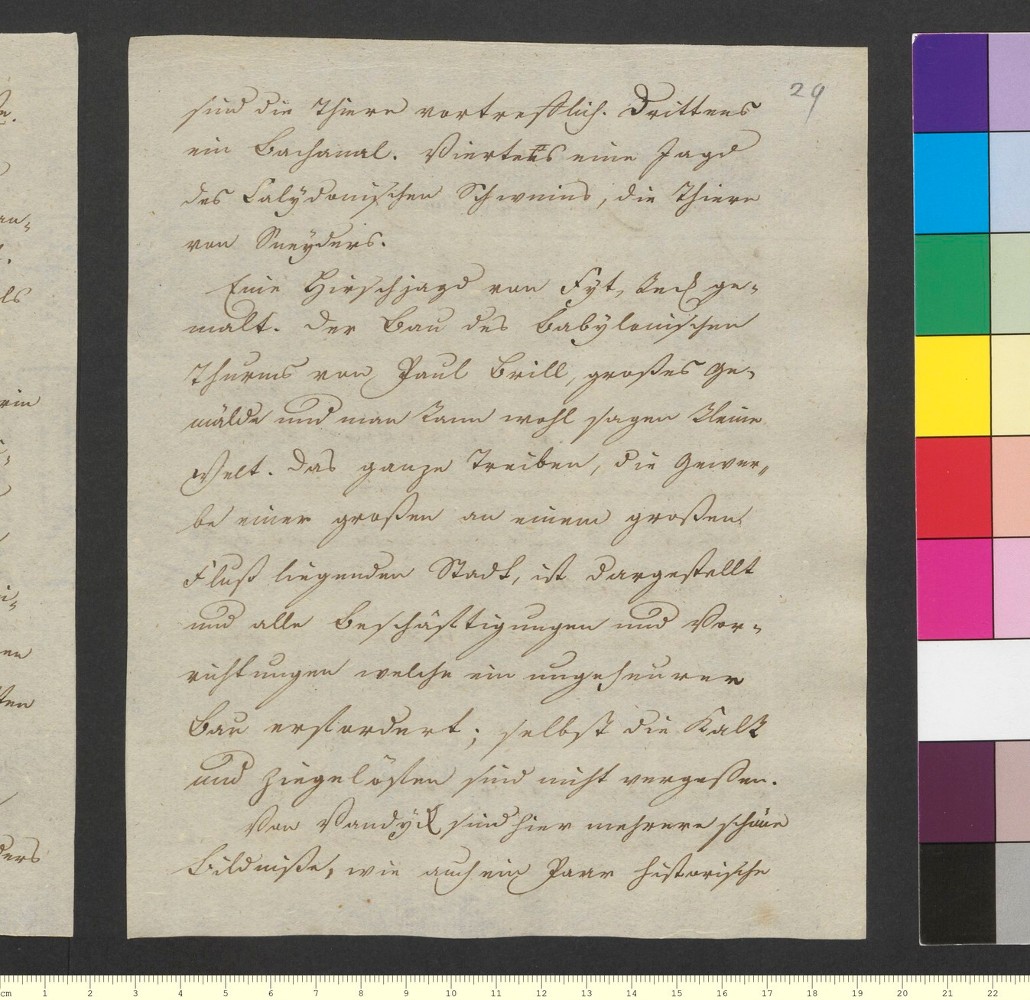 29
sind die Thiere vortrefflich. Drittens
ein Bachanal. Viertens eine Jagd
des Calÿdonischen Schweins, die Thiere
von Sneÿders.
Eine Hirschjagd von Fyt, keck ge-
malt. Der Bau des Babylonischen
Thurms von Paul Brill, großes Ge-
mälde und man kann wohl sagen kleine
Welt. Das ganze Treiben, die Gewer-
be einer großen an einem großen
Fluß liegenden Stadt, ist dargestellt
und alle Beschäftigungen und Vor-
richtungen welche ein ungeheurer
Bau erfordert; selbst die Kalk
und Ziegelöfen sind nicht vergessen.
Von Vandÿck sind hier mehrere schöne
Bildniße, wie auch ein Paar historische
cm 1 2 3 4 5 6 7 8 9 10 11 12 13 14 15 16 17 18 19 20 21 22